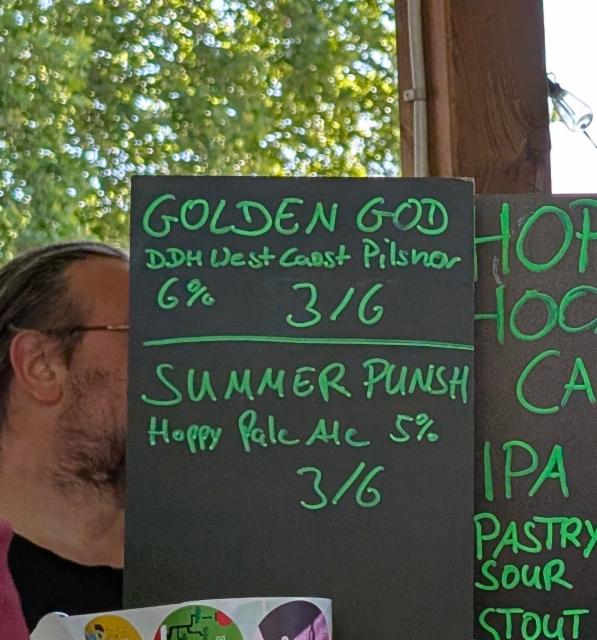 GOLDEN GOD
DDH West Caost Pilsnor
6% 3/6
SUMMER PUNSH
Hoppy Pale Ale 5%
3/6
HOP
HOO
CA
IPA
PASTRY
SOUR
STOUT